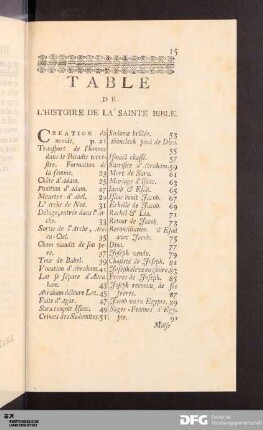 15
TABLE
DE
L'HISTOIRE DE LA SAINTE BIBLE.
CREATION du
monde, p. 21
Transport de l'homme
dans le Paradis terre-
stre. Formation de
la femme. 23
Chûte d'Adam. 25
Punition d'Adam. 27
Meurtre d'Abel. 29
L'Arche de Noé. 31
Déluge, entrée dans l'Ar-
che. 33
Sortie de l'Arche, Arc-
en-Ciel. 35
Cham maudit de son pe-
re. 37
Tour de Babel. 39
Vocation d'Abraham. 41
Lot se separe d'Abra-
ham. 43
Abraham délivre Lot. 45
Fuite d'Agar. 47
Sara conçoit Isaac. 49
Crimes des Sodomites. 51
Sodome brûlée. 53
Abimelech puni de Dieu.
55
Ismaël chassé. 57
Sacrifice d'Abraham. 59
Mort de Sara. 61
Mariage d'Isaac. 63
Jacob & Esaü. 65
Isaac benit Jacob. 67
Echelle de Jacob. 69
Rachel & Lia. 71
Retour de Jacob. 73
Reconciliation d'Esaü
avec Jacob. 75
Dina. 77
Joseph vendu. 79
Chasteté de Joseph. 81
Joseph élevé en gloire. 83
Freres de Joseph. 85
Joseph reconnu de ses
freres. 87
Jacob va en Egypte. 89
Sages-Femmes d'Egy-
pte. 91
DFG Deutsche
Forschungsgemeinschaft